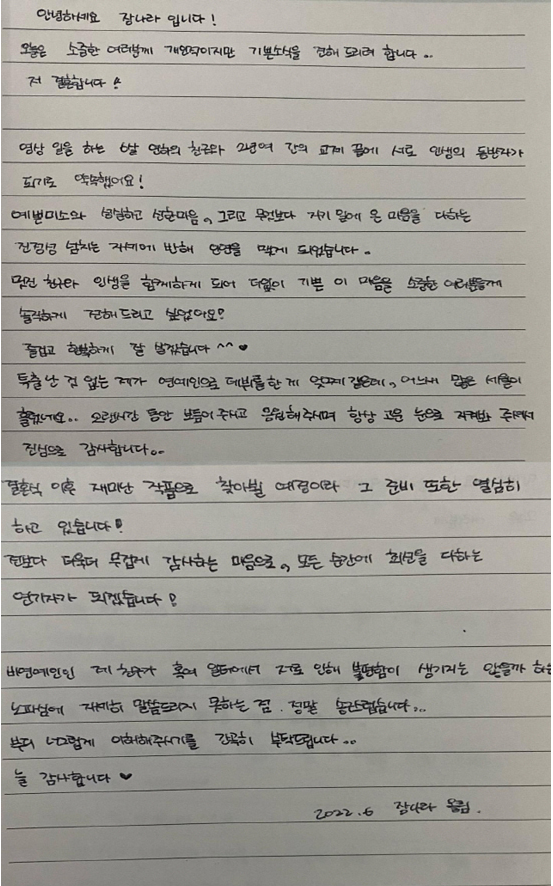 안녕하세요 장나라 입니다!
오늘은 소중한 여러분께 개인적이지만 기쁜소식을 전해 드리려 합니다..
저 결혼합니다!
영상 일을 하는 6살 연하의 친구와 2년여 간의 교제 끝에 서로 인생의 동반자가
되기로 약속했어요!
예쁜미소와 성실하고 선한마음, 그리고 무엇보다 자기 일에 온 마음을 다하는
진정성 넘치는 자세에 반해 인연을 맺게 되었습니다..
멋진 친구와 인생을 함께하게 되어 더없이 기쁜 이 마음을 소중한 여러분들께
솔직하게 전해드리고 싶었어요!
즐겁고 행복하게 잘 살겠습니다^^♥
특출난 것 없는 제가 연예인으로 데뷔를 한 게 엊그제 같은데, 어느새 많은 세월이
흘렀네요.. 오랜시간 동안 보듬어주시고 응원해주시며 항상 고운 눈으로 지켜봐 주셔서
진심으로 감사합니다..
결혼식 이후 재미난 작품으로 찾아뵐 예정이라 그 준비 또한 열심히
하고 있습니다!
전보다 더욱더 무겁게 감사하는 마음으로, 모든 순간에 최선을 다하는
연기자가 되겠습니다!
비연예인인 제 친구가 혹여 일터에서 저로 인해 불편함이 생기지는 않을까 하는
노파심에 자세히 말씀드리지 못하는 점. 정말 송산럽습니다...
부디 너그럽게 이해해주시기를 간곡히 부탁드립니다..
늘 감사합니다♥
2022.6 장나라 올림.